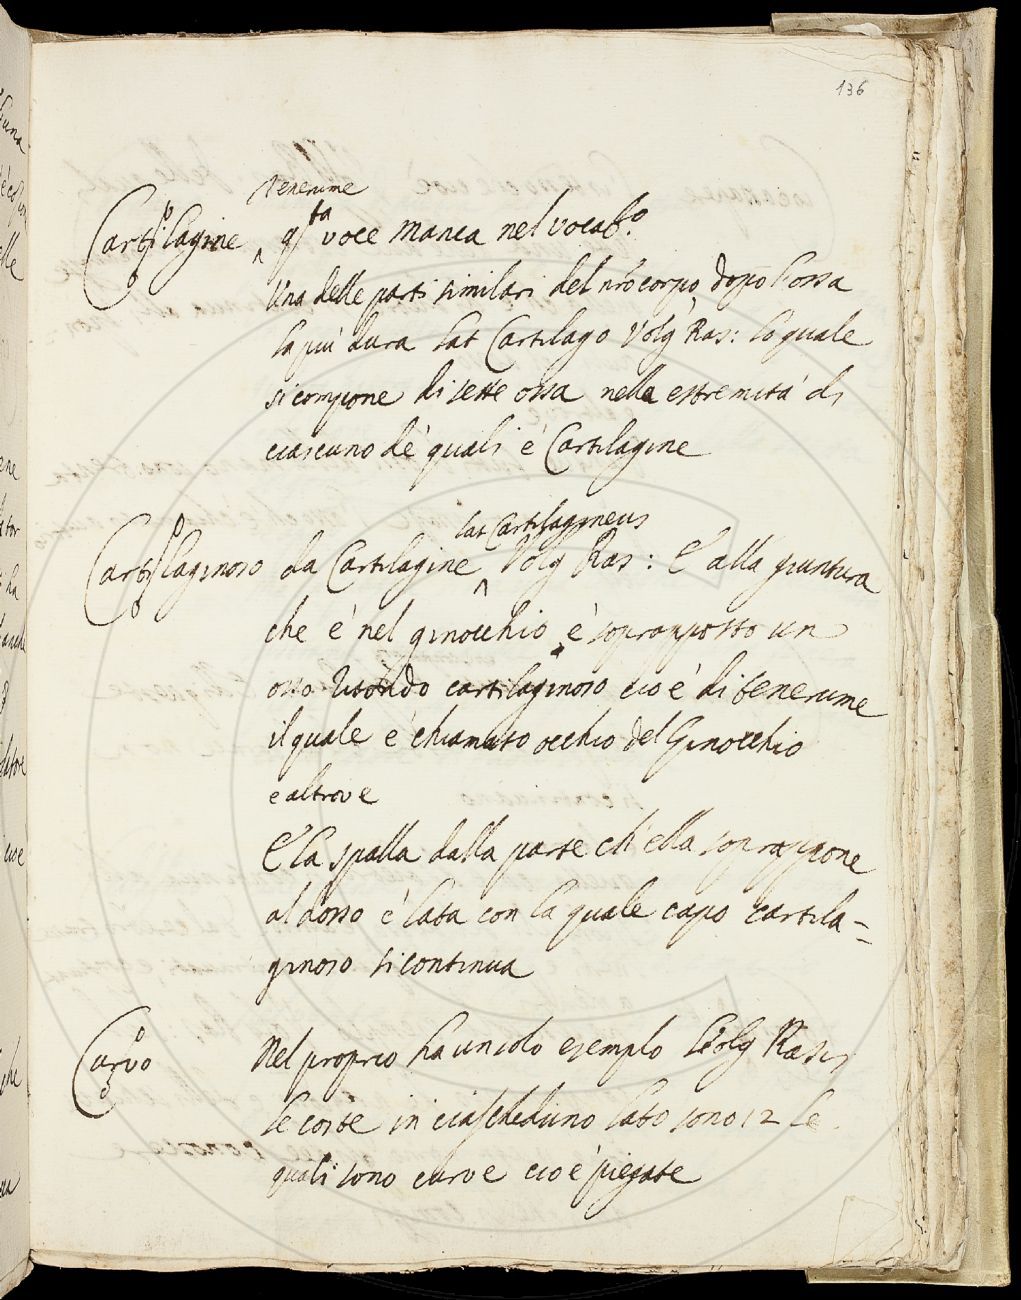 136
Tenerume
Cartilagine ^ qsta voce manca nel vocabo.
Una delle parti similari del nro corpo, dopo l'ossa
la più dura lat Cartilago Volg Ras: lo quale
si compone di sette ossa nella estremità di
ciascuno de' quali è Cartilagine
lat Cartilagineus
Cartilaginoso da Cartilagine ^ Volg Ras: E alla giuntura
che è nel ginocchio è soprapposto un
osso ritondo cartilaginoso cioè di tenerume
il quale è chiamato occhio del Ginocchio
e altrove
E la spalla dalla parte ch'ella soprappone
al dosso è lata con la quale capo cartila=
ginoso si continua
Curvo Nel proprio ha un solo esemplo Volg Rasis
le coste in ciascheduno lato sono 12 le
quali sono curve cioè piegate